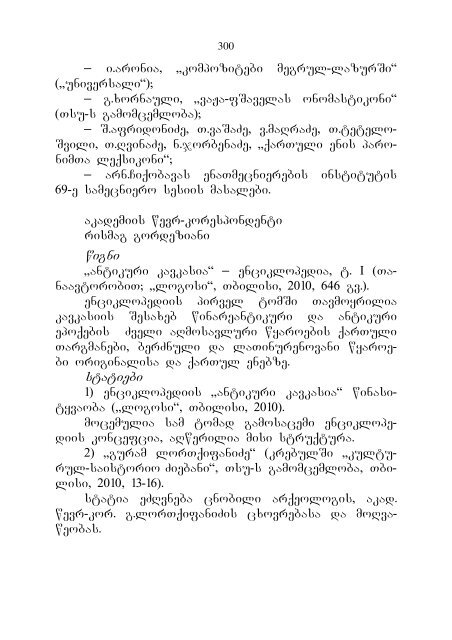 300
– ი.არონია, „კომპოზიტები მეგრულ-ლაზურში“
(„უნივერსალი“);
– გ.ხორნაული, „ვაჟა-ფშაველას ონომასტიკონი“
(თსუ-ს გამომცემლობა);
– შ.აფრიდონიძე, თ.ვაშაძე, ვ.მაღრაძე, თ.ტეტელო-
შვილი, თ.ღვინაძე, ნ.ჯორბენაძე, „ქართული ენის პარო-
ნიმთა ლექსიკონი“;
– არნ.ჩიქობავას ენათმეცნიერების ინსტიტუტის
69-ე სამეცნიერო სესიის მასალები.
აკადემიის წევრ-კორესპონდენტი
რისმაგ გორდეზიანი
წიგნი
„ანტიკური კავკასია“ – ენციკლოპედია, ტ. I (თა-
ნაავტორობით; „ლოგოსი“, თბილისი, 2010, 646 გვ.).
ენციკლოპედიის პირველ ტომში თავმოყრილია
კავკასიის შესახებ წინარეანტიკური და ანტიკური
ეპოქების ძველი აღმოსავლური წყაროების ქართული
თარგმანები, ბერძნული და ლათინურენოვანი წყარო-
ბი ორიგინალისა და ქართულ ენებზე.
სტატიები
1) ენციკლოპედიის „ანტიკური კავკასია“ წინასი-
ტყვაობა („ლოგოსი“, თბილისი, 2010).
მოცემულია სამ ტომად გამოსაცემი ენციკლოპე-
დიის კონცეფცია, აღწერილია მისი სტრუქტურა.
2) „გურამ ლორთქიფანიძე“ (კრებულში „კულტუ-
რულ-საისტორიო ძიებანი“, თსუ-ს გამომცემლობა, თბი-
ლისი, 2010, 13-16).
სტატია ეძღვნება ცნობილი არქეოლოგის, აკად.
წევრ-კორ. გ.ლორთქიფანიძის ცხოვრებასა და მოღვა-
წეობას.